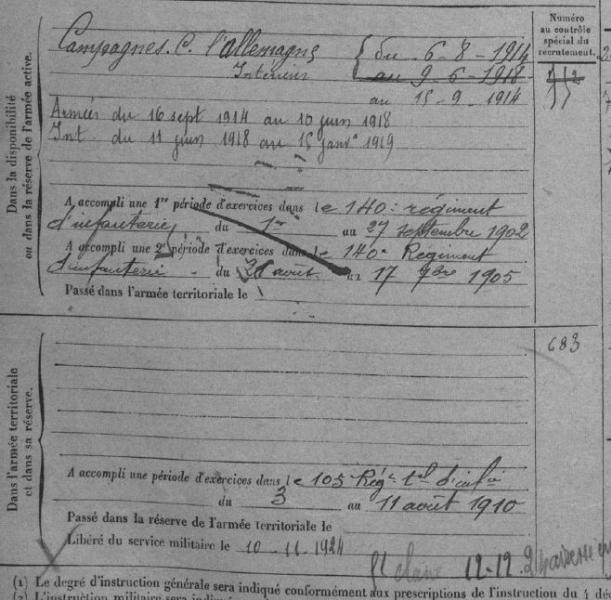 Numéro
au contrôle
spécial du
recrutement.
Dans la disponibilité
ou dans la réserve de l'armée active.
Campagnes. C. l'allemagne du 6-8-1914
Intérieur au 9-6-1918
au 15-9-1914
Armées du 16 sept 1914 au 10 juin 1918
Int. du 11 juin 1918 au 15 janvr 1919
A accompli une 1re période d'exercices dans le 140e régiment
d'infanterie du 1er au 27 septembre 1902
A accompli une 2e période d'exercices dans le 140e Régiment
d'infanterie du août au 17 7bre 1905
Passé dans l'armée territoriale le
683
Dans l'armée territoriale
et dans sa réserve.
A accompli une période d'exercices dans le 105 Régt tal d'infie
du 3 au 11 août 1910
Passé dans la réserve de l'armée territoriale le
Libéré du service militaire le 10-11-1924
12-12
(1) Le degré d'instruction générale sera indiqué conformément aux prescriptions de l'instruction du 4
(2) L'instruction militaire sera